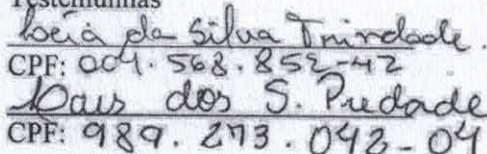 Testemunhas
Loeiá da Silva Trindade.
CPF: 004.568.852-42
Lais dos S. Predade
CPF: 989.273.042-04